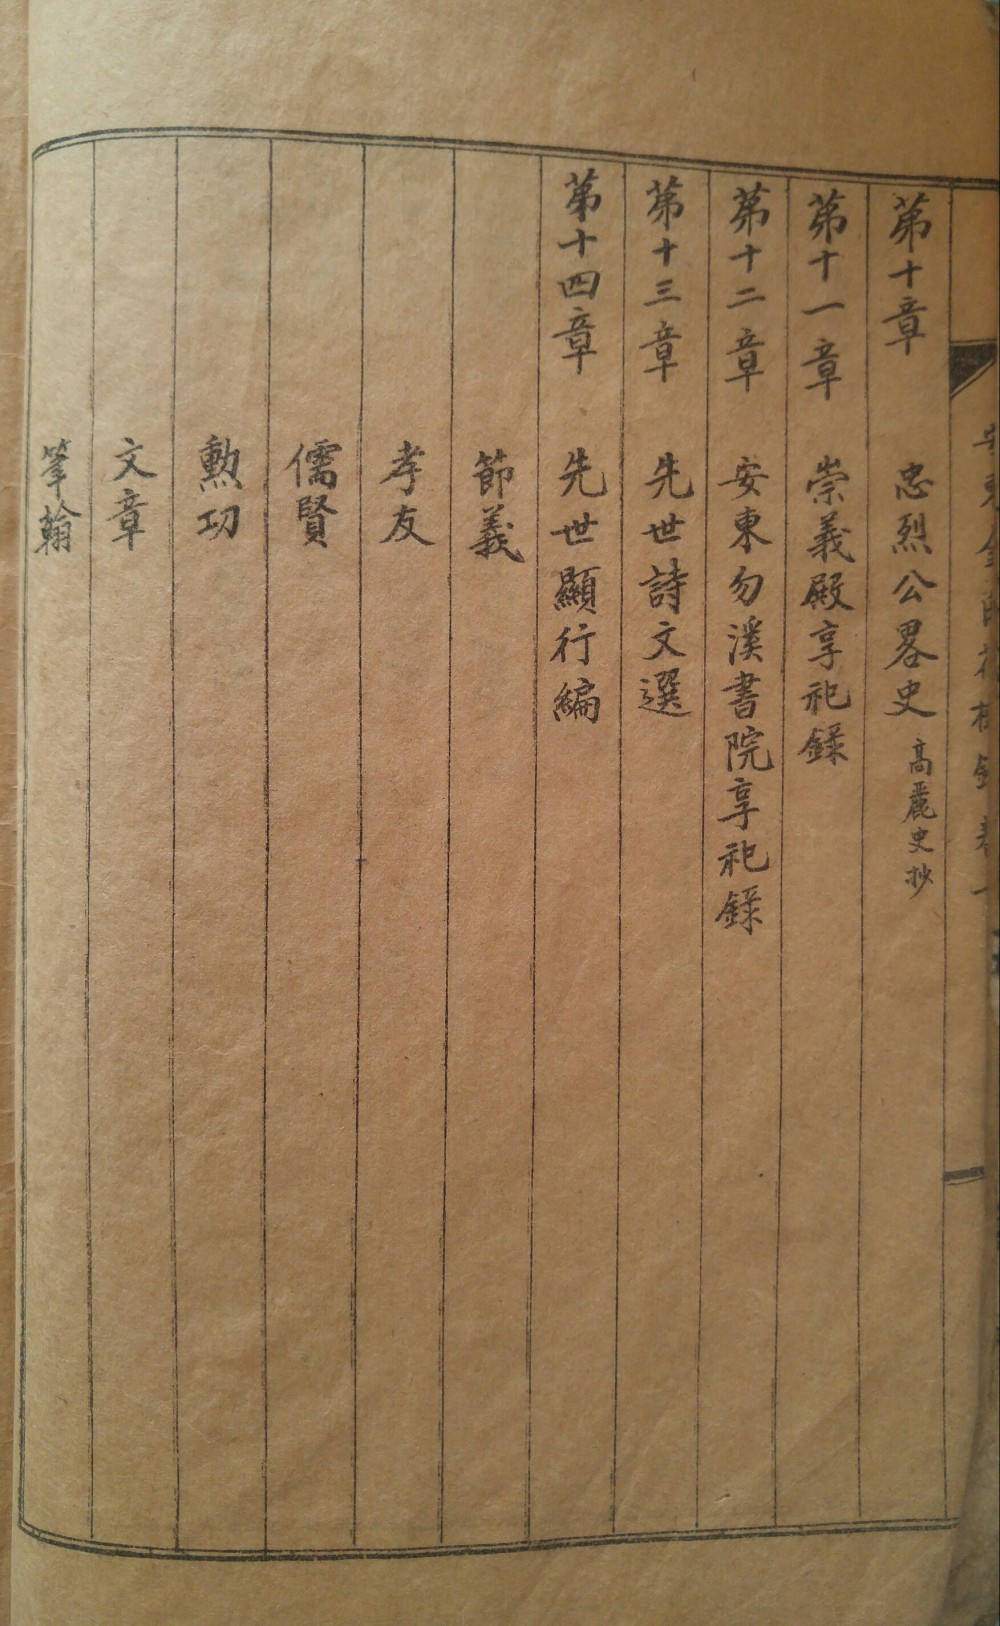 第十章 忠烈公畧史 高麗史抄
第十一章 崇義殿享祀錄
第十二章 安東勿溪書院享祀錄
第十三章 先世詩文選
第十四章 先世顯行編
節義
孝友
儒賢
勳功
文章
筆翰